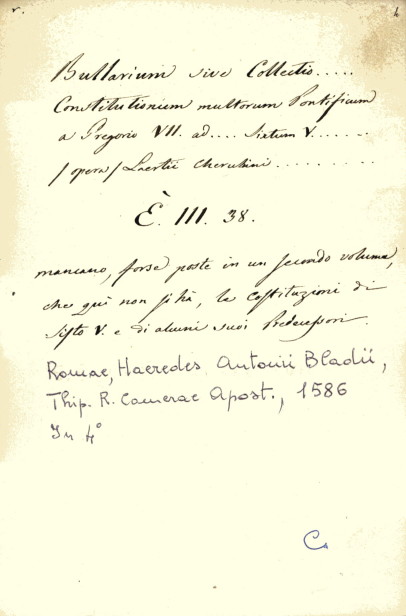 Bullarium sive Collectio.....
Constitutionum multorum Pontificum
a Gregorio VII. ad.... Sixtum V.......
/opera/ Laertii Cherubini..........
È. III. 38.
mancano, forse poste in un secondo volume,
che quì non si hà, le Costituzioni di
Sisto V. e di alcuni suoi Predecessori.
Romae, Haeredes Antonii Bladii,
Thip. R. Camerae Apost., 1586
In 4°